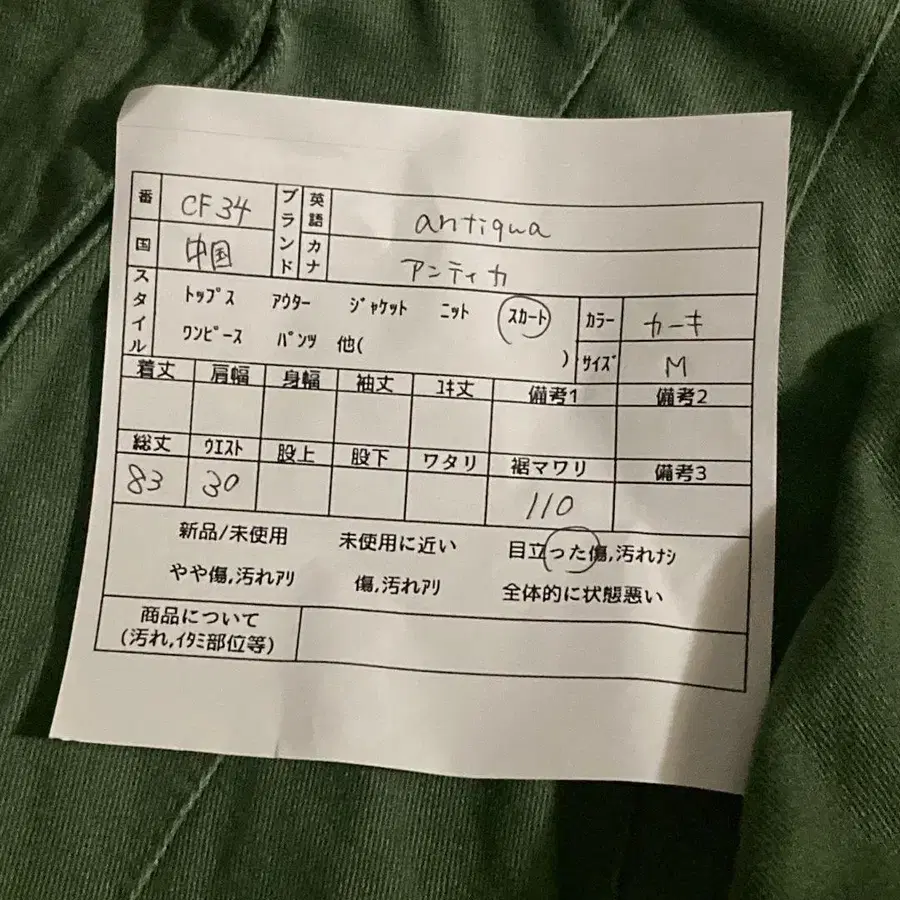 番 CF34 ブランド 英語 antiqua
国 中国 カナ アンティカ
スタイル トップス アウター ジャケット ニット スカート カラー カーキ
ワンピース パンツ 他( ) サイズ M
着丈 肩幅 身幅 袖丈 ユキ丈 備考1 備考2
総丈 ウエスト 股上 股下 ワタリ 裾マワリ 備考3
83 30 110
新品/未使用 未使用に近い 目立った傷,汚れナシ
やや傷,汚れアリ 傷,汚れアリ 全体的に状態悪い
商品について
(汚れ,イタミ部位等)